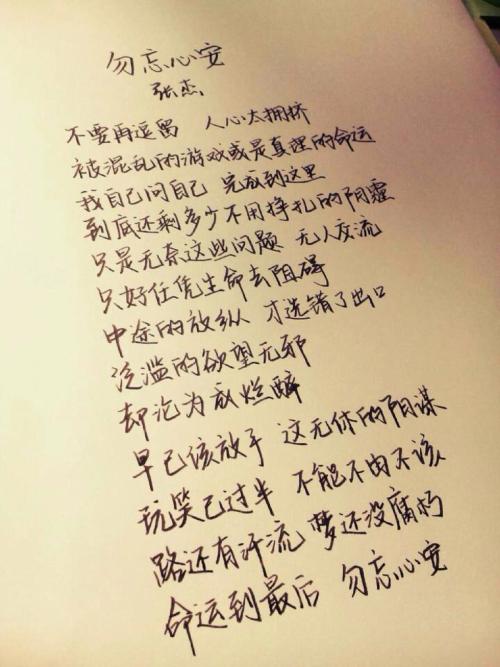 勿忘心安
张杰
不要再逗留 人心太拥挤
被混乱的游戏或是真理的命运
我自己问自己 完成到这里
到底还剩多少不用挣扎的阴霾
只是无奈这些问题 无人交流
只好任凭生命去阻碍
中途的放纵 才选错了出口
泛滥的欲望无邪
却沦为放烂醉
早已该放手 这无休的阴谋
玩笑已过半 不能不由不该
路还有汗流 梦还没腐朽
命运到最后 勿忘心安